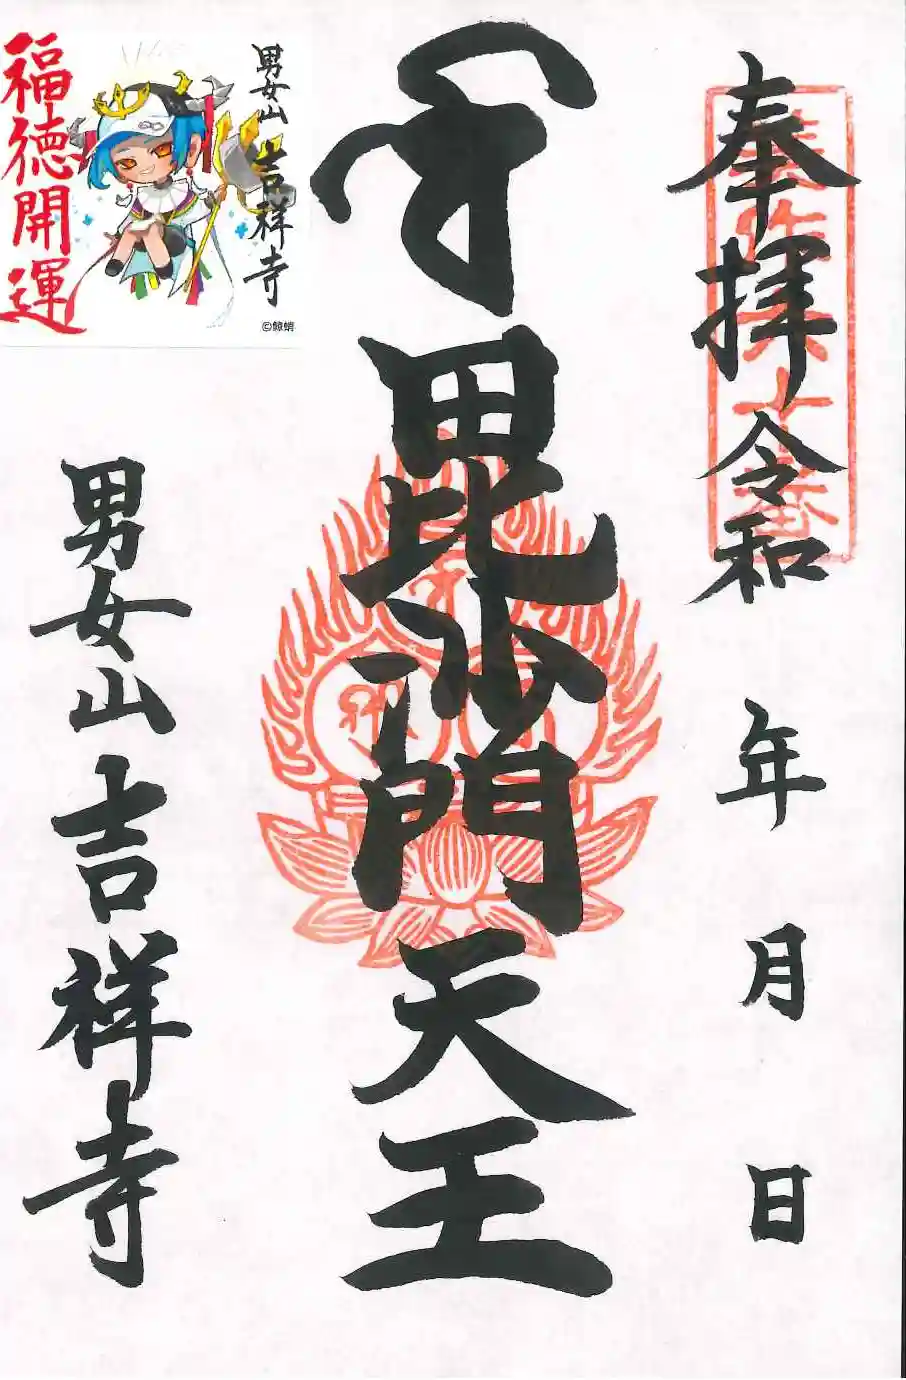 奉拝 令和 年 月 日
毘沙門天王
男女山 吉祥寺
男女山 吉祥寺
福徳開運
©鯨蛸